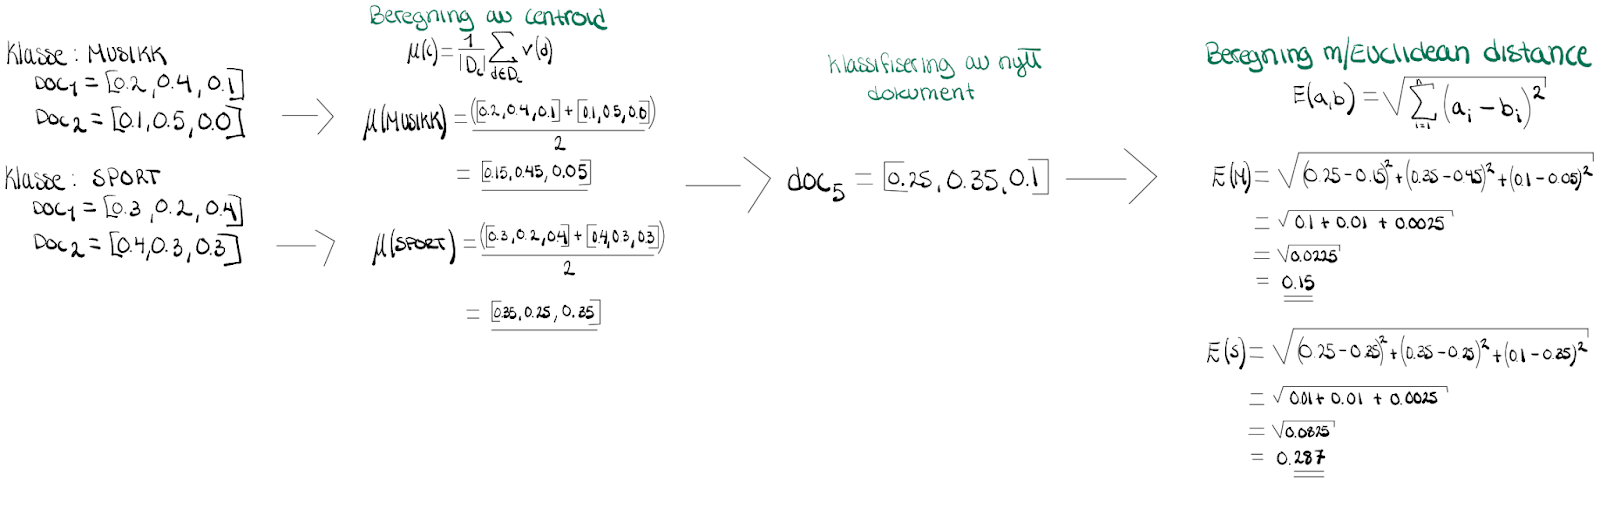 Klasse: MUSIKK
Doc₁ = [0.2, 0.4, 0.1]
Doc₂ = [0.1, 0.5, 0.0]
Klasse: SPORT
Doc₁ = [0.3, 0.2, 0.4]
Doc₂ = [0.4, 0.3, 0.3]
Beregning av centroid
μ(c) = 1/|D_c| ∑_{d∈D_c} v(d)
μ(MUSIKK) = ([0.2, 0.4, 0.1] + [0.1, 0.5, 0.0])
2
= [0.15, 0.45, 0.05]
μ(SPORT) = ([0.3, 0.2, 0.4] + [0.4, 0.3, 0.3])
2
= [0.35, 0.25, 0.35]
Klassifisering av nytt
dokument
doc₅ = [0.25, 0.35, 0.1]
Beregning m/Euclidean distance
E(a,b) = √∑_{i=1}^{n} (a_i - b_i)²
E(M) = √(0.25 - 0.15)² + (0.35 - 0.45)² + (0.1 - 0.05)²
= √0.1 + 0.01 + 0.0025
= √0.0225
= 0.15
E(S) = √(0.25 - 0.35)² + (0.35 - 0.25)² + (0.1 - 0.35)²
= √0.01 + 0.01 + 0.0025
= √0.0825
= 0.287